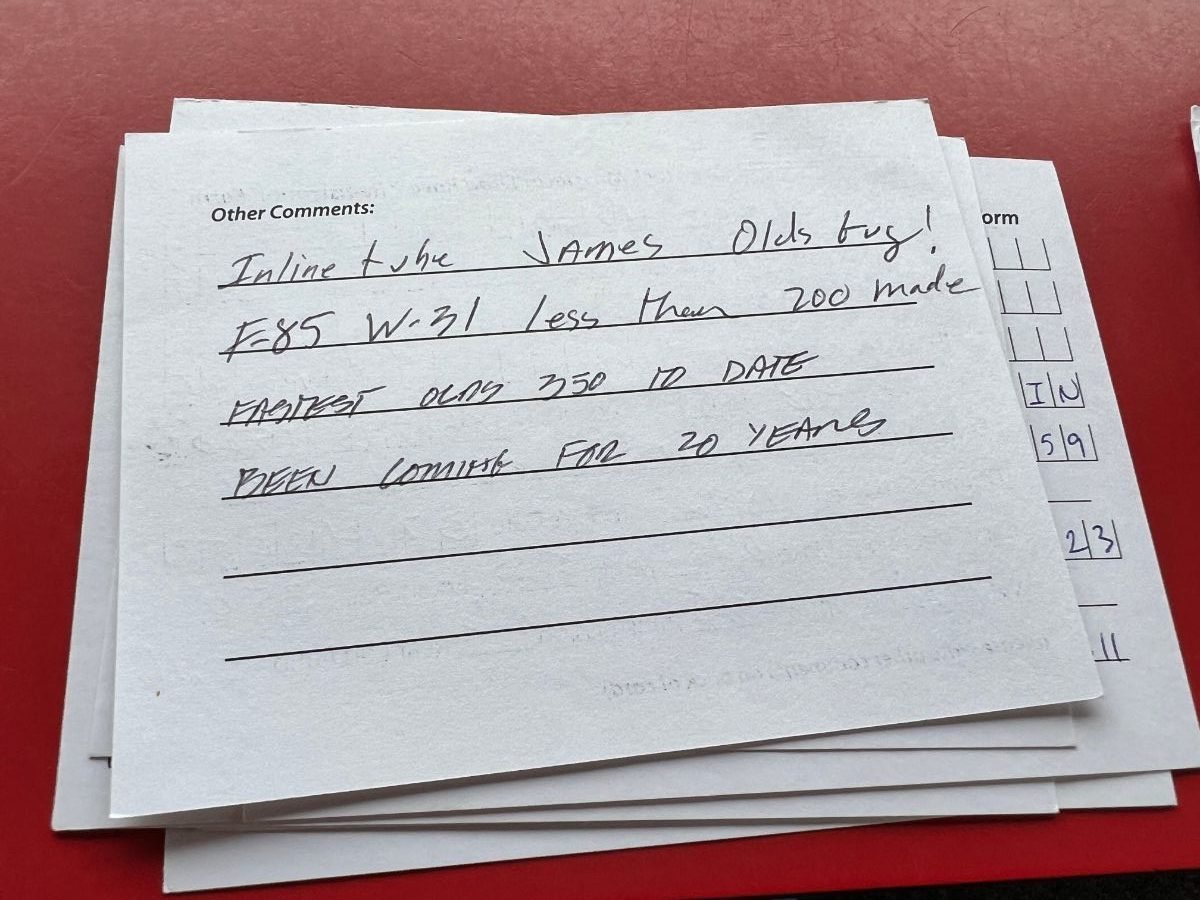 Other Comments:
Inline tube James Olds guy!
F-85 W-31 less than 200 made
FASTEST OLDS 350 TO DATE
BEEN COMING FOR 20 YEARS
orm
IN
59
23
11